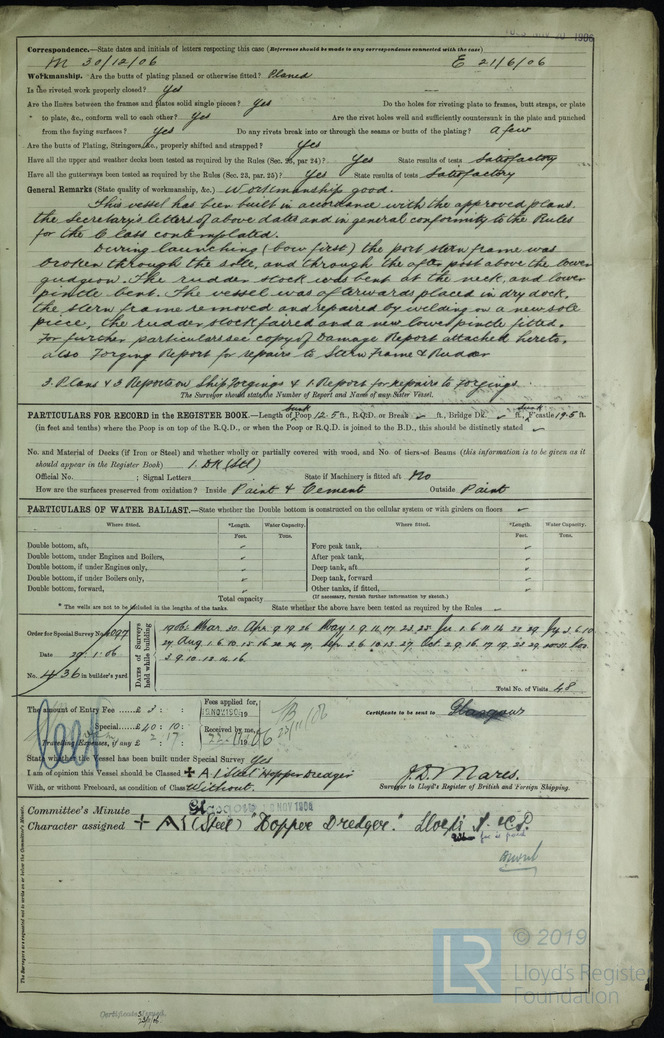 TUES NOV 20 1906
Correspondence.—State dates and initials of letters respecting this case (Reference should be made to any correspondence connected with the case)
M 30/12/06 E 21/6/06
Workmanship. Are the butts of plating planed or otherwise fitted? Planed
Is the riveted work properly closed? Yes
Are the liners between the frames and plates solid single pieces? Yes Do the holes for riveting plate to frames, butt straps, or plate
to plate, &c., conform well to each other? Yes Are the rivet holes well and sufficiently countersunk in the plate and punched
from the faying surfaces? Yes Do any rivets break into or through the seams or butts of the plating? A few
Are the butts of Plating, Stringers, &c., properly shifted and strapped? Yes
Have all the upper and weather decks been tested as required by the Rules (Sec. 23, par 24)? Yes State results of tests Satisfactory
Have all the gutterways been tested as required by the Rules (Sec. 23, par. 25)? Yes State results of tests Satisfactory
General Remarks (State quality of workmanship, &c.) Workmanship good.
This vessel has been built in accordance with the approved plans.
the Secretary's letters of above dates and in general conformity to the Rules
for the Class contemplated.
During launching (bow first) the port stern frame was
broken through the sole, and through the after post above the lower
gudgeon. The rudder stock was bent at the neck, and lower
pintle bent. The vessel was afterwards placed in dry dock,
the stern frame removed and repaired by welding on a new sole
piece, the rudder stock faired and a new lower pintle fitted.
For further particulars see copy of Damage Report attached hereto,
also Forging Report for repairs to Stern Frame & Rudder
3. Plans & 3 Reports on Ship Forgings & 1 Report for repairs to Forgings.
The Surveyor should state the Number of Report and Name of any Sister Vessel.
PARTICULARS FOR RECORD in the REGISTER BOOK.—Length of Sunk Poop 12.5 ft., R.Q.D. or Break ft., Bridge Dk. ft., Sunk F'castle 19.5 ft.
(in feet and tenths) where the Poop is on top of the R.Q.D., or when the Poop or R.Q.D. is joined to the B.D., this should be distinctly stated
No. and Material of Decks (if Iron or Steel) and whether wholly or partially covered with wood, and No. of tiers of Beams (this information is to be given as it
should appear in the Register Book) 1. DK (Stl)
Official No. ; Signal Letters State if Machinery is fitted aft No
How are the surfaces preserved from oxidation? Inside Paint & Cement Outside Paint
PARTICULARS OF WATER BALLAST.—State whether the Double bottom is constructed on the cellular system or with girders on floors
Where fitted. *Length. Water Capacity. Where fitted. *Length. Water Capacity.
Feet. Tons. Feet. Tons.
Double bottom, aft, Fore peak tank,
Double bottom, under Engines and Boilers, After peak tank,
Double bottom, if under Engines only, Deep tank, aft
Double bottom, if under Boilers only, Deep tank, forward
Double bottom, forward, Other tanks, if fitted,
Total capacity (If necessary, furnish further information by sketch.)
* The wells are not to be included in the lengths of the tanks. State whether the above have been tested as required by the Rules
Order for Special Survey No. 4097
Date 29.1.06
No. 436 in builder's yard.
DATES of Surveys held while building
1906: Mar. 20. Apr. 9. 19. 26 May 1. 9. 11. 17. 23. 25. Ju. 1. 6. 11. 14. 22. 29. Jy 3. 6. 10.
27. Aug. 1. 6. 10. 15. 16. 20. 24. 29. Sep. 3. 6. 10. 13. 27. Oct. 2. 9. 16. 17. 19. 23. 29. Nov.
3. 9. 10. 12. 14. 16.
Total No. of Visits 48
The amount of Entry Fee £ 3 : :
Special £ 40 : 10 :
Travelling Expenses, if any £ 2 : 17 :
Fees applied for,
19 NOV 1906
Received by me,
22/11/06
23/11/06
Certificate to be sent to Glasgow
State whether Vessel has been built under Special Survey Yes
I am of opinion this Vessel should be Classed ✠ A 1 Steel "Hopper Dredger"
With, or without Freeboard, as condition of Class Without.
Surveyor to Lloyd's Register of British and Foreign Shipping.
Committee's Minute Glasgow NOV 1906
Character assigned + A1 (Steel) "Hopper Dredger." Lloyd's A. & C.P.
The Surveyors are requested not to write on or below the Committee's Minute.
Certificate issued.
LR
© 2019
Lloyd's Register
Foundation